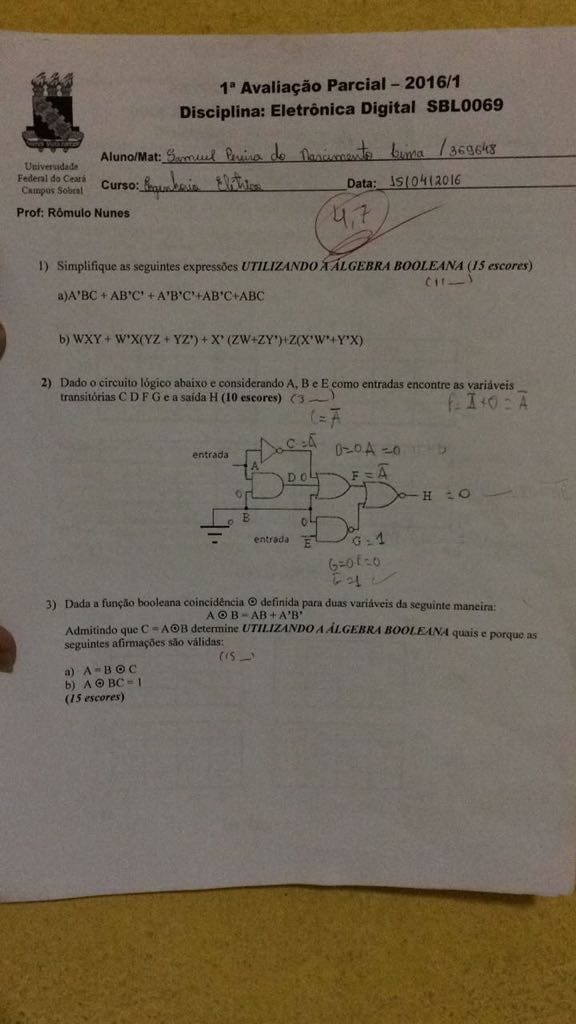 1ª Avaliação Parcial – 2016/1
Disciplina: Eletrônica Digital SBL0069
Universidade
Federal do Ceará
Campus Sobral
Aluno/Mat: Samuel Pereira do Nascimento Lima / 369648
Curso: Engenharia Elétrica Data: 15/04/2016
Prof: Rômulo Nunes
4,7
1) Simplifique as seguintes expressões UTILIZANDO A ÁLGEBRA BOOLEANA (15 escores)
(11 _)
a)A'BC + AB'C' + A'B'C'+AB'C+ABC
b) WXY + W'X(YZ + YZ') + X' (ZW+ZY')+Z(X'W'+Y'X)
2) Dado o circuito lógico abaixo e considerando A, B e E como entradas encontre as variáveis
transitórias C D F G e a saída H (10 escores) (3 _)
F = A̅ + 0 = A̅
C = A̅
entrada A C = A̅ D=0A =0
D 0 F = A̅
0 H = 0
0 B 0
entrada E̅ G = 1
G=0E=0
G̅=1
3) Dada a função booleana coincidência ⊙ definida para duas variáveis da seguinte maneira:
A ⊙ B = AB + A'B'
Admitindo que C = A⊙B determine UTILIZANDO A ÁLGEBRA BOOLEANA quais e porque as
seguintes afirmações são válidas:
(15 _)
a) A = B ⊙ C
b) A ⊙ BC = 1
(15 escores)